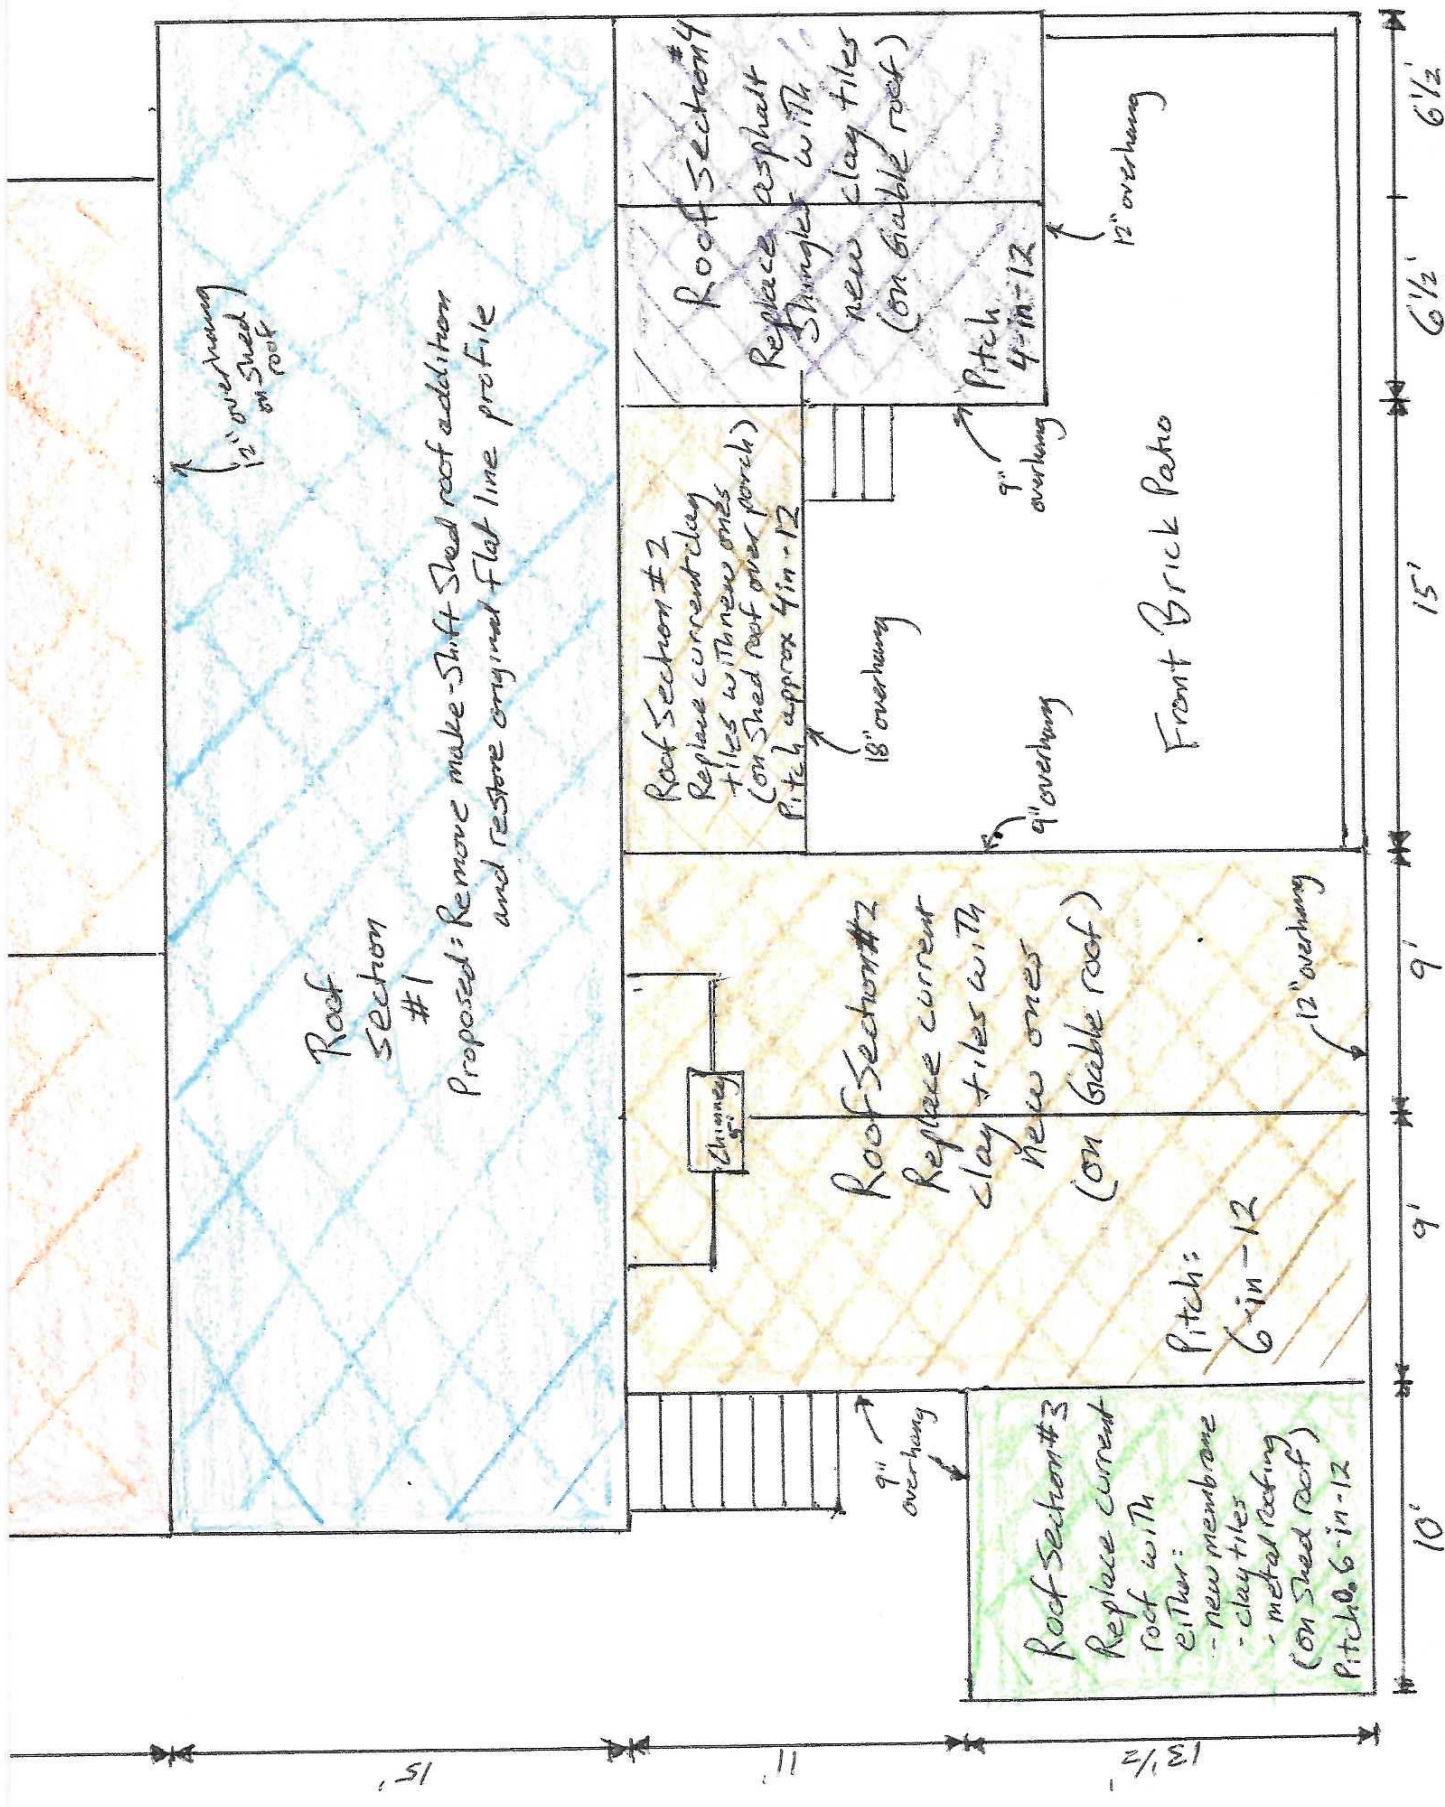 12" overhang
on Shed
roof
Roof
Section
#1
Proposed: Remove make-shift Shed roof addition
and restore original flat line profile
Roof Section #4
Replace asphalt
Shingles with
new clay tiles
(on Gable roof)
Pitch
4-in-12
12" overhang
9"
overhang
Roof Section #2
Replace current clay
tiles with new ones
(on Shed roof over porch)
Pitch approx 4in-12
18" overhang
9" overhang
Front Brick Patio
Chimney
5'
Roof Section #2
Replace current
clay tiles with
new ones
(on Gable roof)
Pitch:
6-in-12
12" overhang
9"
overhang
Roof Section #3
Replace current
roof with
either:
- new membrane
- clay tiles
- metal roofing
(on Shed roof)
Pitch 6-in-12
10'
9'
9'
15'
6 1/2'
6 1/2'
15'
11'
13 1/2'